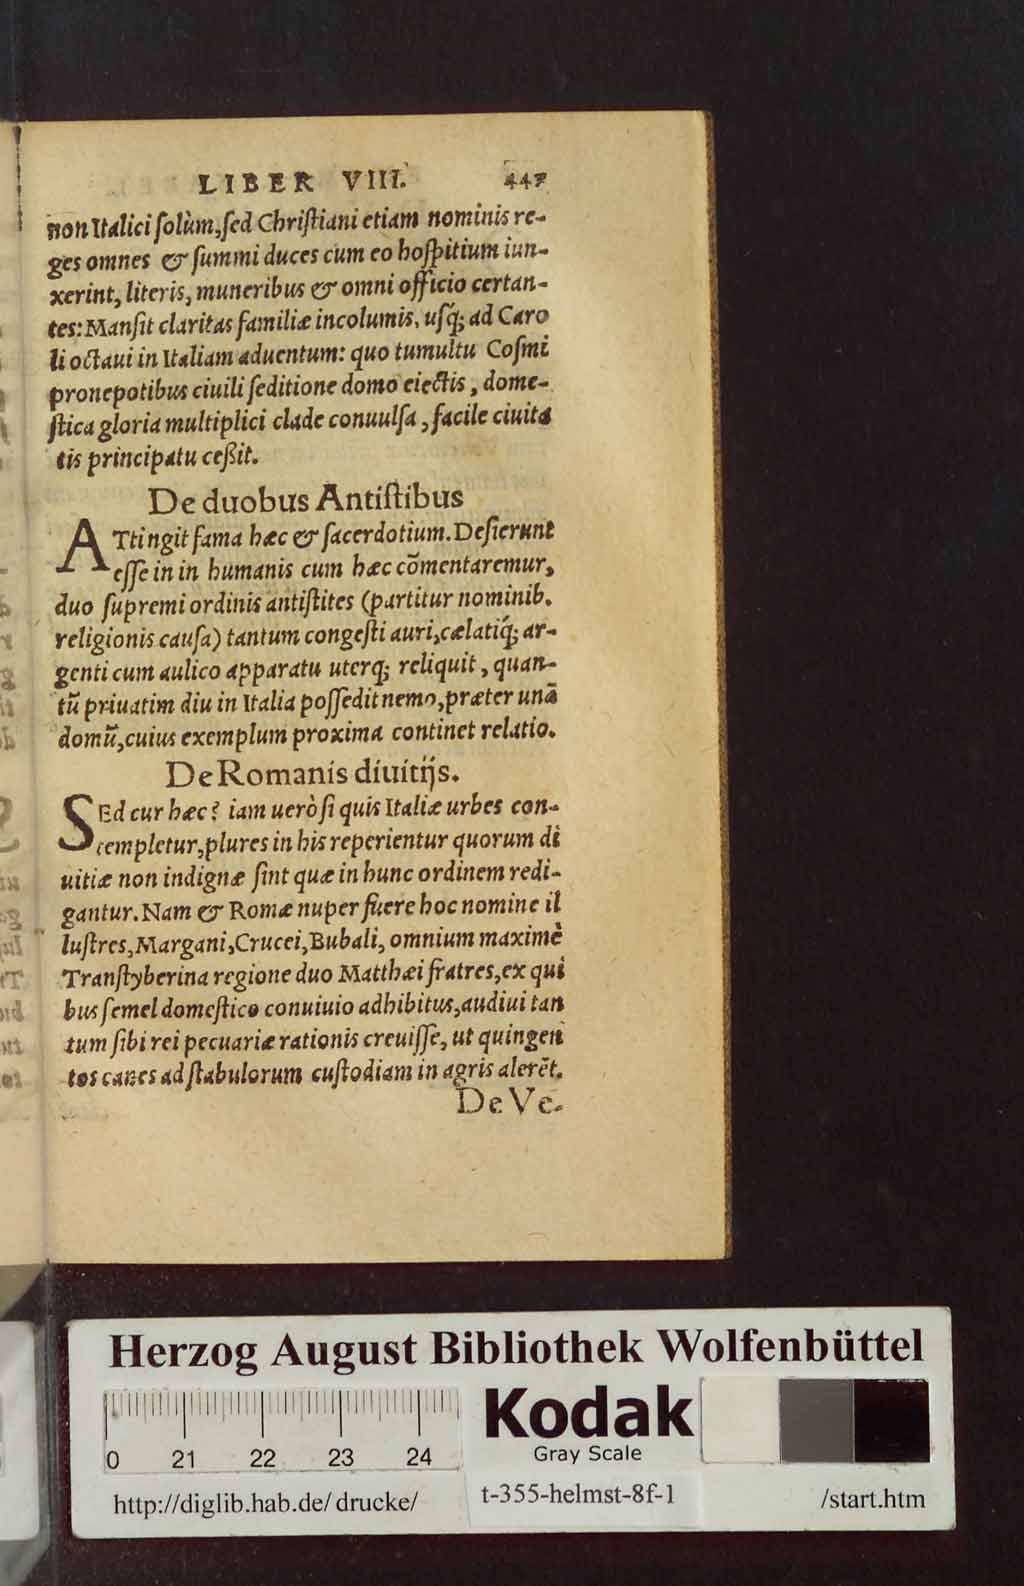 LIBER VIII. 447
non Italici solùm, sed Christiani etiam nominis re-
ges omnes & summi duces cum eo hospitium iun-
xerint, literis, muneribus & omni officio certan-
tes: Mansit claritas familiæ incolumis, usq́; ad Caro
li octaui in Italiam aduentum: quo tumultu Cosmi
pronepotibus ciuili seditione domo eiectis, dome-
stica gloria multiplici clade conuulsa, facile ciuita
tis principatu ceßit.
De duobus Antistibus
ATtingit fama hæc & sacerdotium. Desierunt
esse in in humanis cum hæc cōmentaremur,
duo supremi ordinis antistites (partitur nominib.
religionis causa) tantum congesti auri, cælatiq́; ar-
genti cum aulico apparatu uterq; reliquit, quan-
tū priuatim diu in Italia possedit nemo, præter unā
domū, cuius exemplum proxima continet relatio.
De Romanis diuitijs.
SEd cur hæc? iam uerò si quis Italiæ urbes con-
templetur, plures in his reperientur quorum di
uitiæ non indignæ sint quæ in hunc ordinem redi-
gantur. Nam & Romæ nuper fuere hoc nomine il
lustres, Margani, Crucei, Bubali, omnium maximè
Transtyberina regione duo Matthæi fratres, ex qui
bus semel domestico conuiuio adhibitus, audiui tan
tum sibi rei pecuariæ rationis creuisse, ut quingen
tos canes ad stabulorum custodiam in agris alerēt.
De Ve-
Herzog August Bibliothek Wolfenbüttel
0 21 22 23 24
Kodak
Gray Scale
http://diglib.hab.de/drucke/ t-355-helmst-8f-1 /start.htm